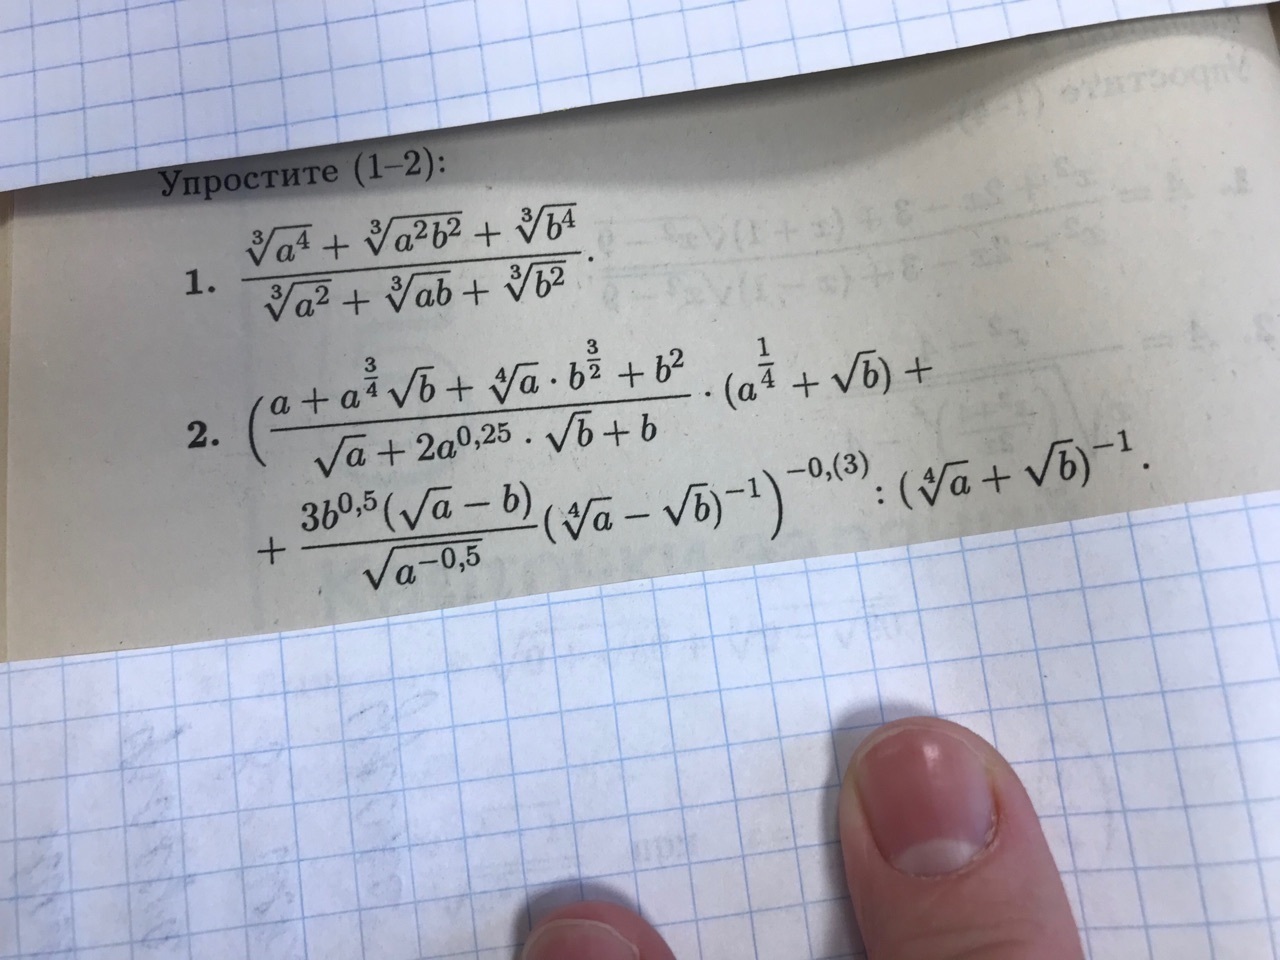 Упростите (1–2):
1. \frac{\sqrt[3]{a^4} + \sqrt[3]{a^2b^2} + \sqrt[3]{b^4}}{\sqrt[3]{a^2} + \sqrt[3]{ab} + \sqrt[3]{b^2}}.
2. \left(\frac{a + a^{\frac{3}{4}}\sqrt{b} + \sqrt[4]{a} \cdot b^{\frac{3}{2}} + b^2}{\sqrt{a} + 2a^{0,25} \cdot \sqrt{b} + b} \cdot (a^{\frac{1}{4}} + \sqrt{b}) +
+ \frac{3b^{0,5}(\sqrt{a} - b)}{\sqrt{a^{-0,5}}}(\sqrt[4]{a} - \sqrt{b})^{-1}\right)^{-0,(3)} : (\sqrt[4]{a} + \sqrt{b})^{-1}.